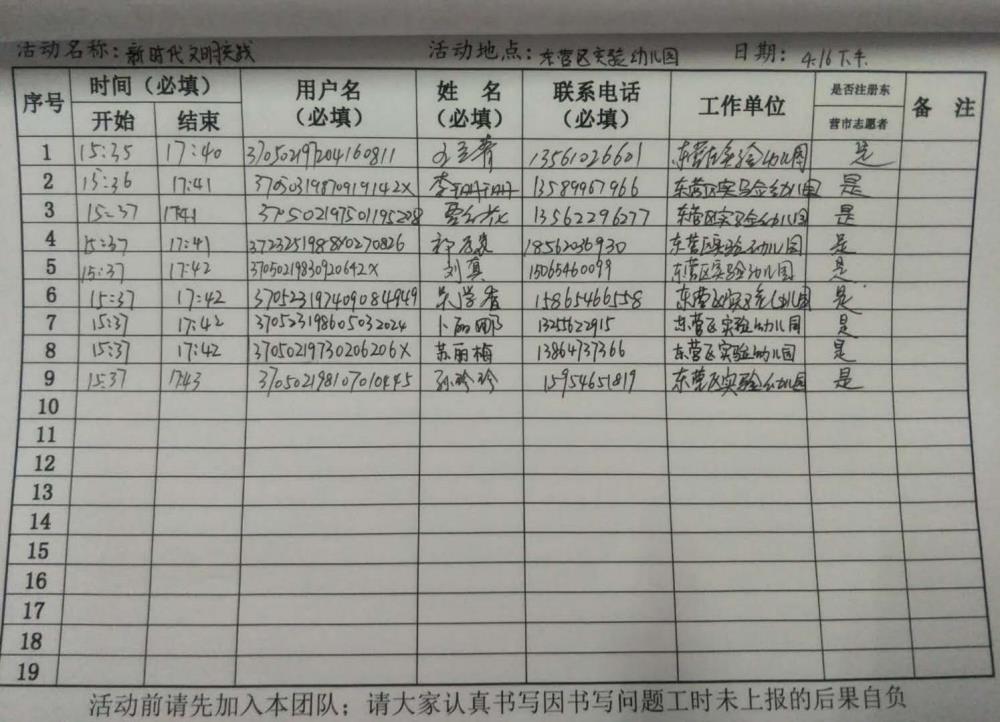 活动名称：新时代文明实践 活动地点：东营区实验幼儿园 日期：4.16下午
序号 时间（必填） 用户名（必填） 姓 名（必填） 联系电话（必填） 工作单位 是否注册东营市志愿者 备 注
开始 结束
1 15:35 17:40 13561026601 东营区实验幼儿园 是
2 15:36 17:41 李珊珊 13589967966 东营区实验幼儿园 是
3 15:37 17:41 13562296277 东营区实验幼儿园 是
4 15:37 17:41 18562036930 东营区实验幼儿园 是
5 15:37 17:42 37050219830920642X 刘真 15065460099 东营区实验幼儿园 是
6 15:37 17:42 吴学香 15865466558 东营区实验幼儿园 是
7 15:37 17:42 370523198605032024 卜丽娜 13255622915 东营区实验幼儿园 是
8 15:37 17:42 37050219730206206X 苏丽梅 13864737366 东营区实验幼儿园 是
9 15:37 17:43 370502198107010445 孙玲玲 15954651819 东营区实验幼儿园 是
10
11
12
13
14
15
16
17
18
19
活动前请先加入本团队；请大家认真书写因书写问题工时未上报的后果自负